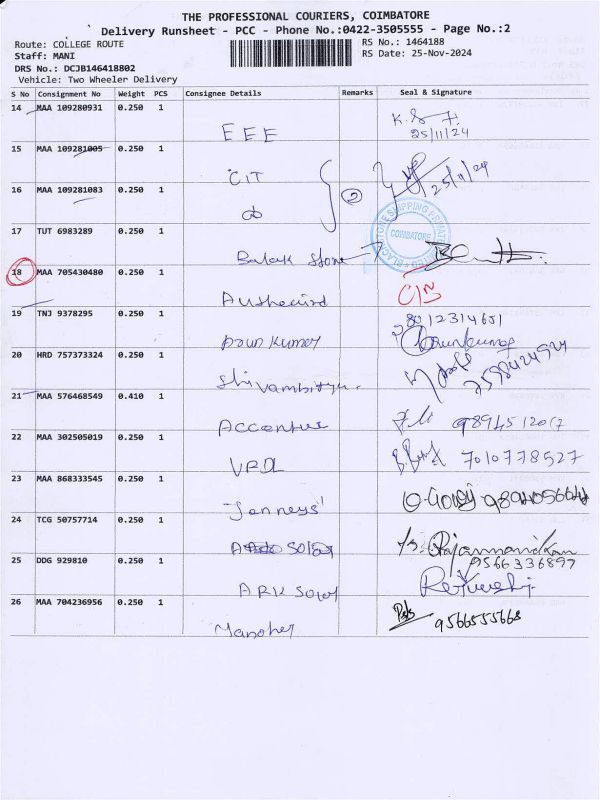 THE PROFESSIONAL COURIERS, COIMBATORE
Delivery Runsheet - PCC - Phone No.:0422-3505555 - Page No.:2
Route: COLLEGE ROUTE
RS No.: 1464188
Staff: MANI
RS Date: 25-Nov-2024
DRS No.: DCJB146418802
Vehicle: Two Wheeler Delivery
S No Consignment No Weight PCS Consignee Details Remarks Seal & Signature
14 MAA 109280931 0.250 1
EEE
25/11/24
15 MAA 109281005 0.250 1
CIT
25/11/24
16 MAA 109281083 0.250 1
2
17 TUT 6983289 0.250 1
COIMBATORE
Balak Stone
18 MAA 705430480 0.250 1
19 TNJ 9378295 0.250 1
8012314651
Arun Kumar
Arunkumar
20 HRD 757373324 0.250 1
7598424924
21 MAA 576468549 0.410 1
9894512017
22 MAA 302505019 0.250 1
7010778527
VRDL
23 MAA 868333545 0.250 1
24 TCG 50757714 0.250 1
25 DDG 929810 0.250 1
9566336897
ARK
26 MAA 704236956 0.250 1
9566555668